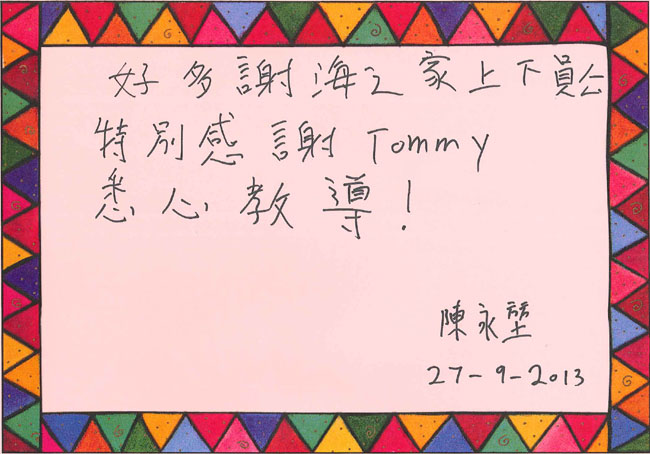 好多謝海之家上下員公
特別感謝 Tommy
悉心教導！
陳永堃
27-9-2013